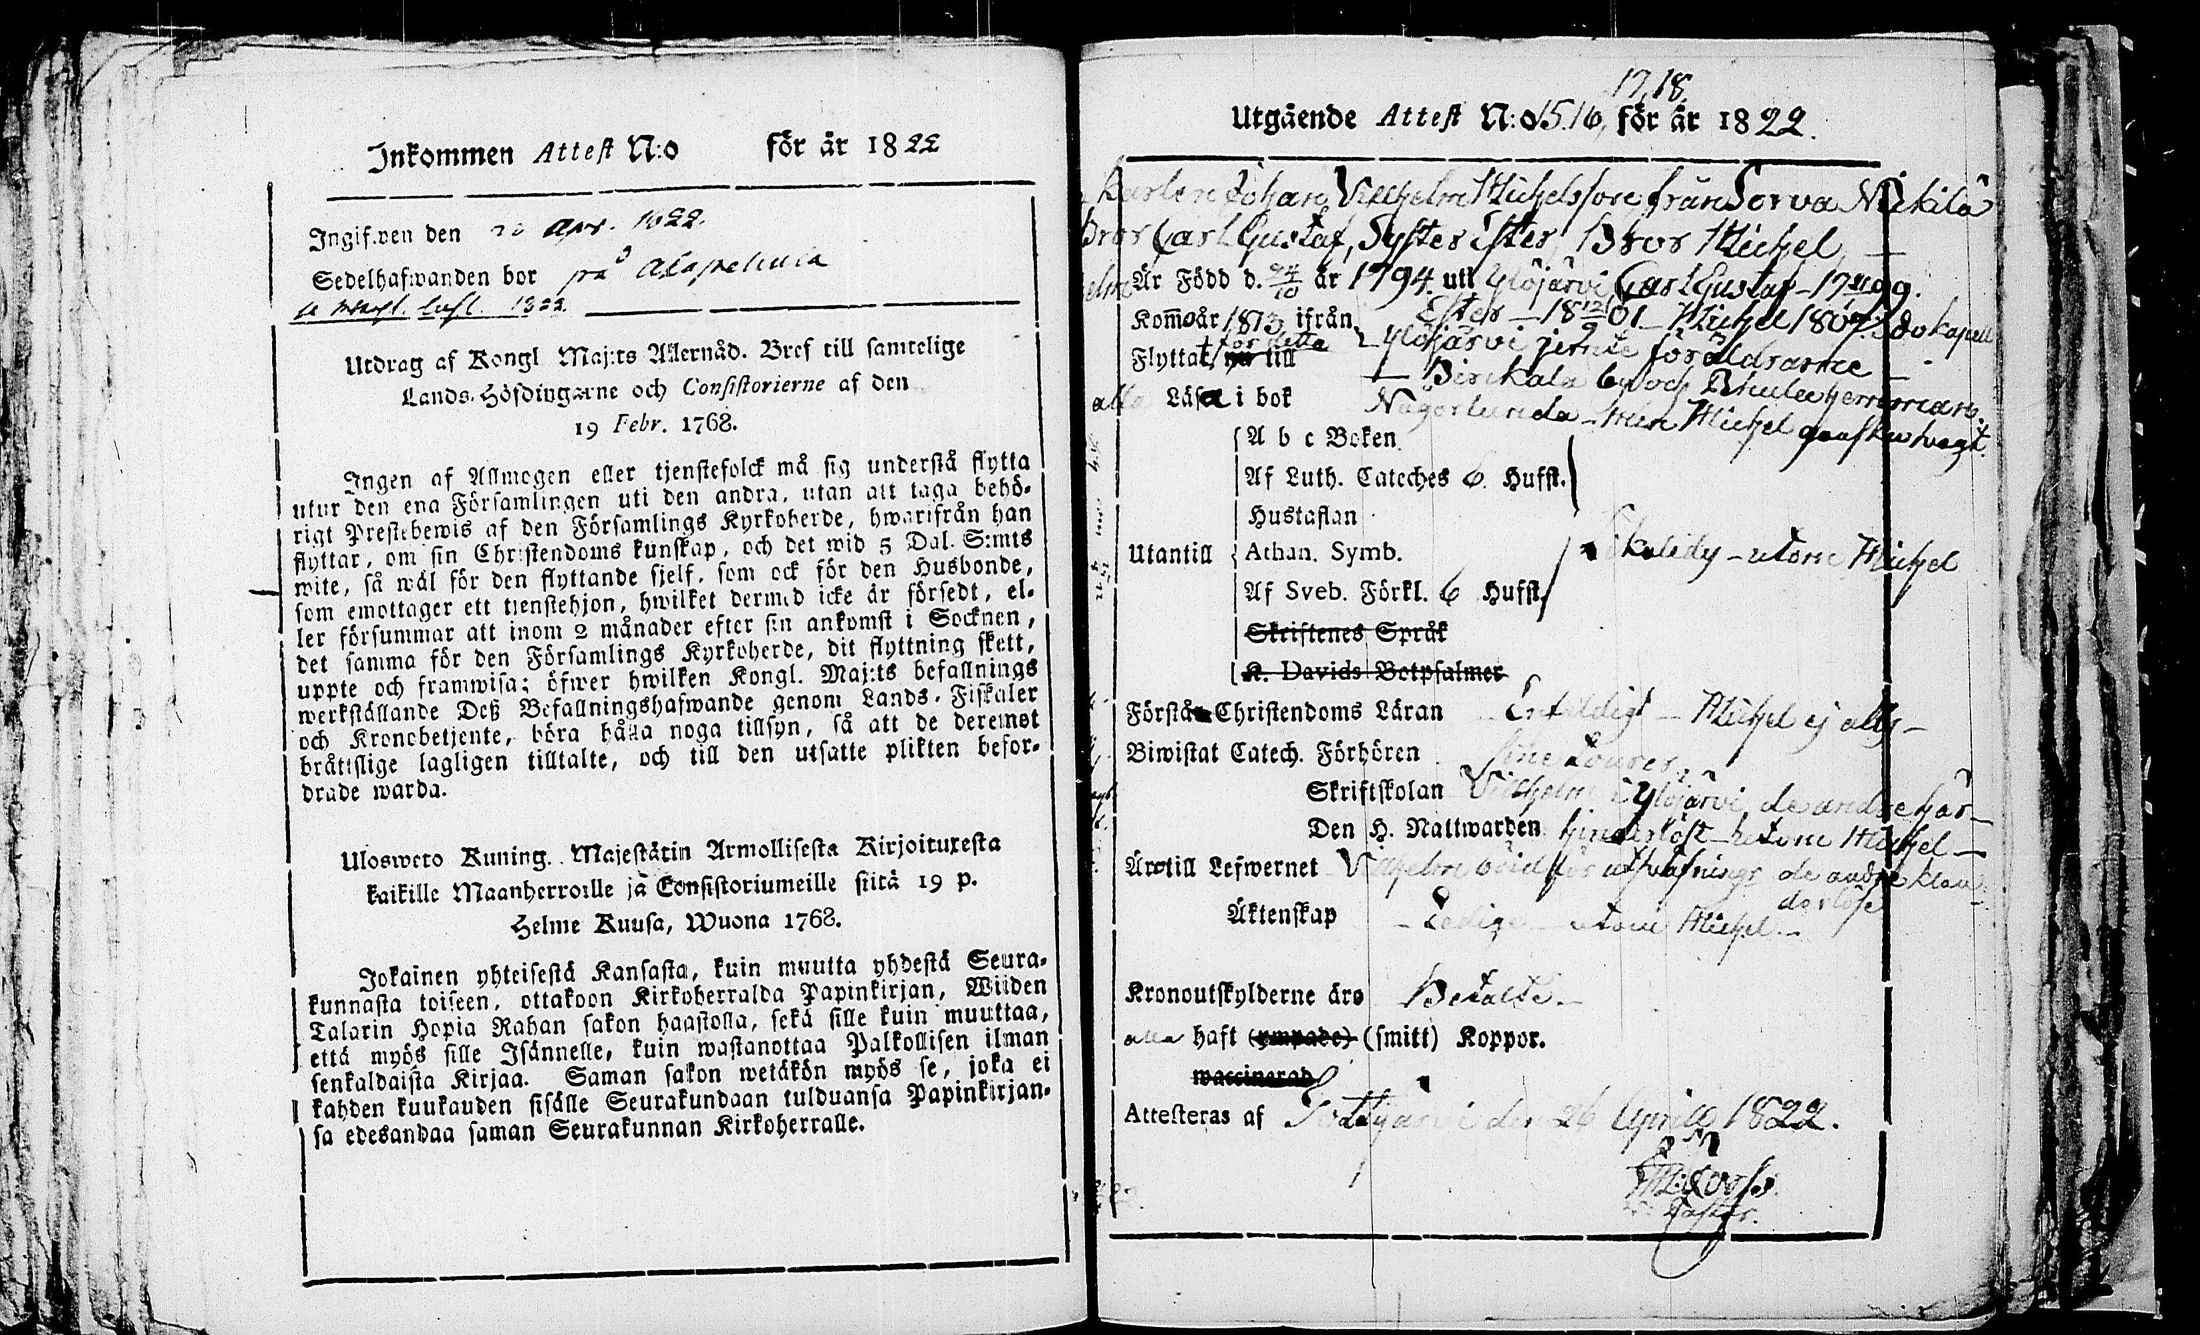 Inkommen Attest N:o för år 1822
Ingifwen den Apr. 1822.
Sedelhafwanden bor på
1822
Utdrag af Kongl Maj:ts Allernåd. Bref till samtelige
Lands-Höfdingarne och Consistorierne af den
19 Febr. 1768.
Ingen af Allmogen eller tjenstefolck må sig understå flytta
utur den ena Församlingen uti den andra, utan att taga behö-
rigt Prestebewis af den Församlings Kyrkoherde, hwarifrån han
flyttar, om sin Christendoms kunskap, och det wid 5 Dal. S:mts
wite, så wäl för den flyttande sjelf, som ock för den Husbonde,
som emottager ett tjenstehjon, hwilket dermed icke är försedt, el-
ler försummar att inom 2 månader efter sin ankomst i Socknen,
det samma för den Församlings Kyrkoherde, dit flyttning skett,
uppte och framwisa; öfwer hwilken Kongl. Maj:ts befallnings
werkställande Deß Befallningshafwande genom Lands-Fiskaler
och Kronobetjente, böra hålla noga tillsyn, så att de deremot
bråttslige lagligen tilltalte, och till den utsatte plikten befor-
drade warda.
Ulosweto Kuning. Majestätin Armollisesta Kirjoituxesta
kaikille Maanherroille ja Consistoriumeille siitä 19 p.
Helme Kuusa, Wuona 1768.
Jokainen yhteisestä Kansasta, kuin muutta yhdestä Seura-
kunnasta toiseen, ottakoon Kirkoherralda Papinkirjan, Wiiden
Talarin Hopia Rahan sakon haastolla, sekä sille kuin muuttaa,
että myös sille Isännelle, kuin wastanottaa Palkollisen ilman
senkaldaista Kirjaa. Saman sakon wetäkön myös se, joka ei
kahden kuukauden sisälle Seurakundaan tulduansa Papinkirjan-
sa edesandaa saman Seurakunnan Kirkoherralle.
17, 18
Utgående Attest N:o 15. 16, för år 1822.
Karlen Johan Vilhelm Michelsson från Sorva Nikkilä
Bror Carl Gustaf, Syster Ester, Bror Michel
Är Född d. 24/10 år 1794 uti Ylöjärvi Carl Gustaf 17 99.
Kom̄o år 1813 ifrån Ester 18 12/9 01 Michel 180 do kapell
för detta Ylöjärvi jemte föräldrarne
Flyttat, nu till Birckala
alla Läsa i bok Någorlunda men Michel ganska svagt
A b c Boken
Af Luth. Catechis 6. Hufst.
Hustaflan
Utantill Athan. Symb. Skäligt utom Michel
Af Sveb. Förkl. 6 Hufst.
Skriftenes Språk
K. Davids Botpsalmer
Förstå Christendoms Läran Enfaldigt Michel ej alls
Biwistat Catech. Förhören
Skriftskolan Vilhelm i Ylöjärvi, de andre här
Den H. Nattwarden hinderlöst utom Michel
Äro till Lefwernet Vilhelm de andre klan-
derlöse
Äktenskap Lediga utom Michel
Kronoutskylderne äro Betalte.
alla haft (ympade) (smitt) Koppor.
waccinerad
Attesteras af den 26 Aprill 1822.
Pastor.